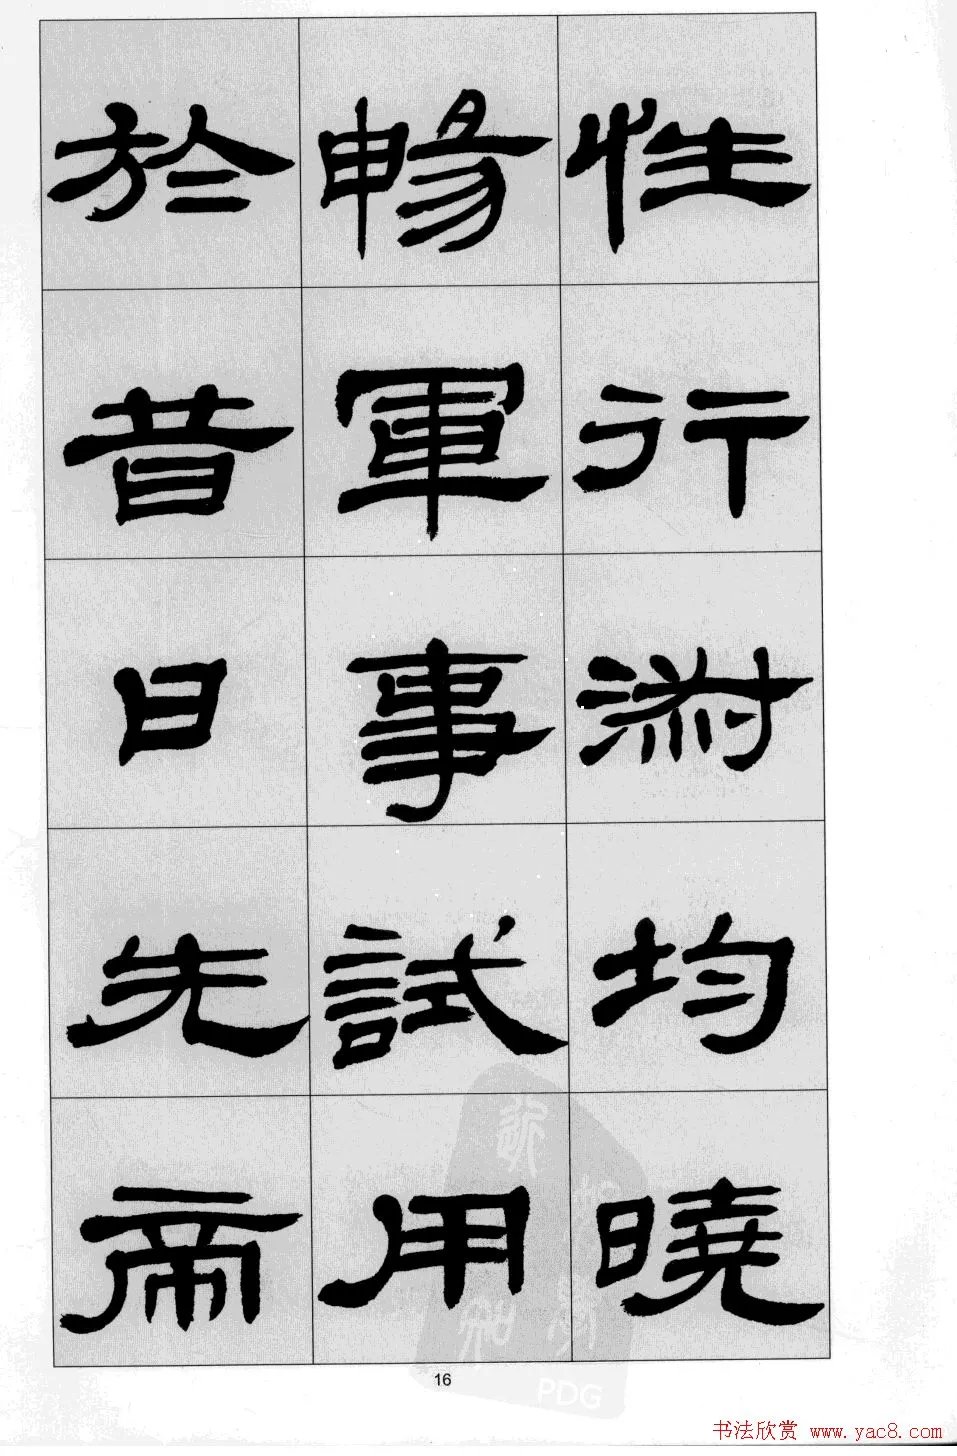 性行淑均曉
暢軍事試用
於昔日先帝
16
PDG
书法欣赏 www.yac8.com